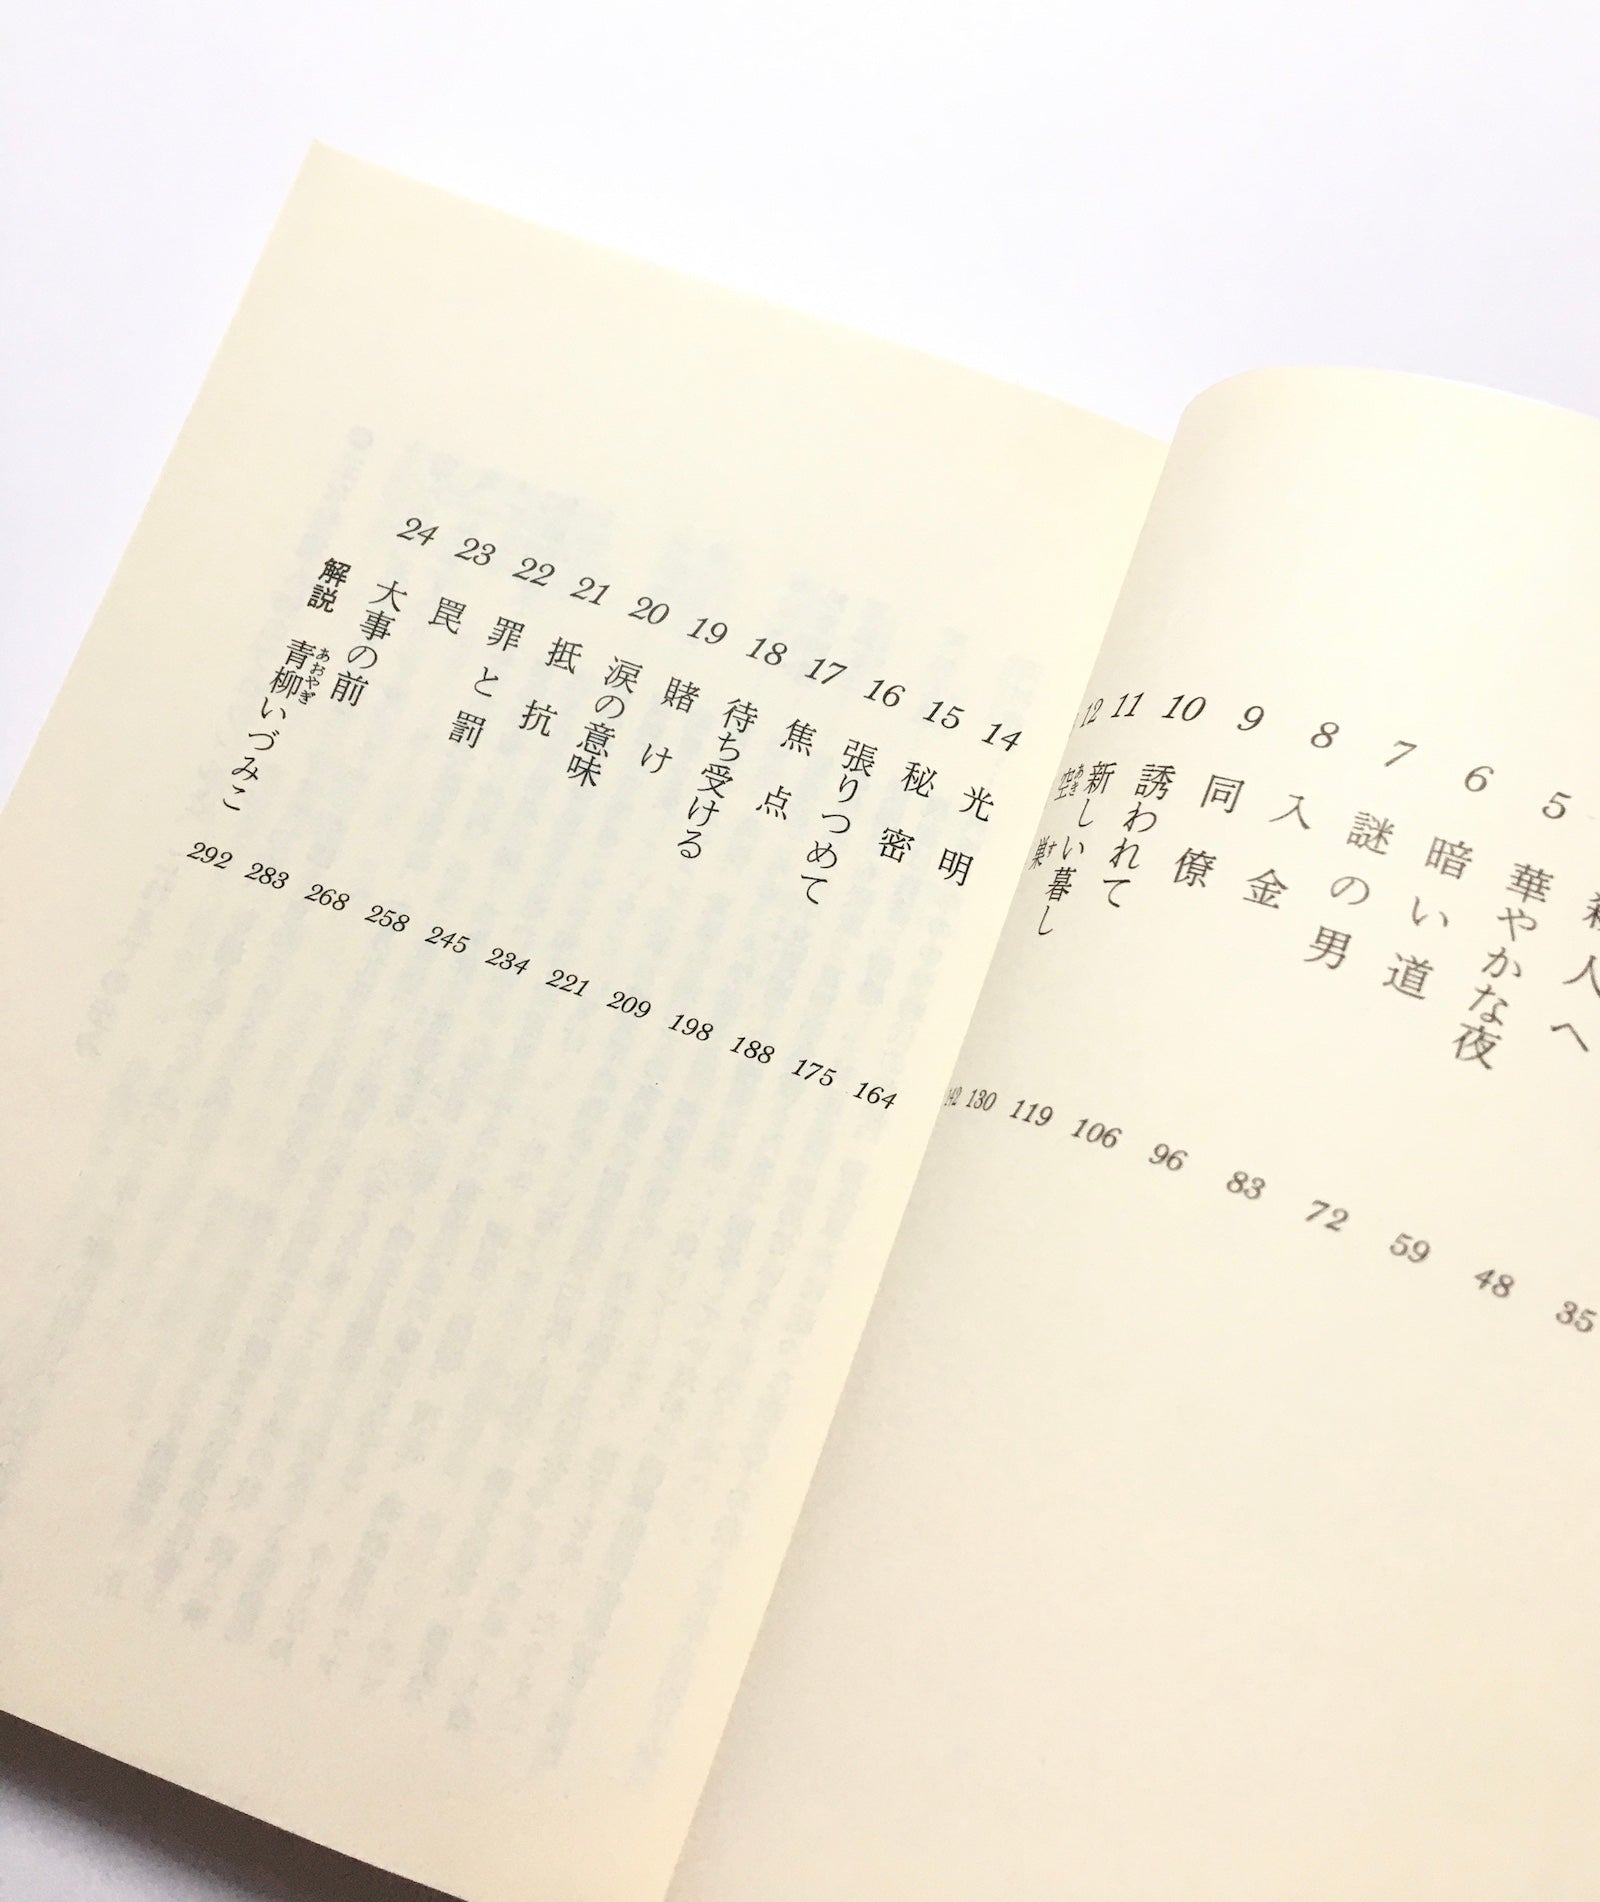 35
人へ 48
5 華やかな夜 59
6 暗い道 72
7 謎の男 83
8 入金 96
9 同僚 106
10 誘われて 119
11 新しい暮し 130
12 空巣 あきす 142
14 光明 164
15 秘密 175
16 張りつめて 188
17 焦点 198
18 待ち受ける 209
19 賭け 221
20 涙の意味 234
21 抵抗 245
22 罪と罰 258
23 罠 268
24 大事の前 283
解説 青柳いづみこ あおやぎ 292